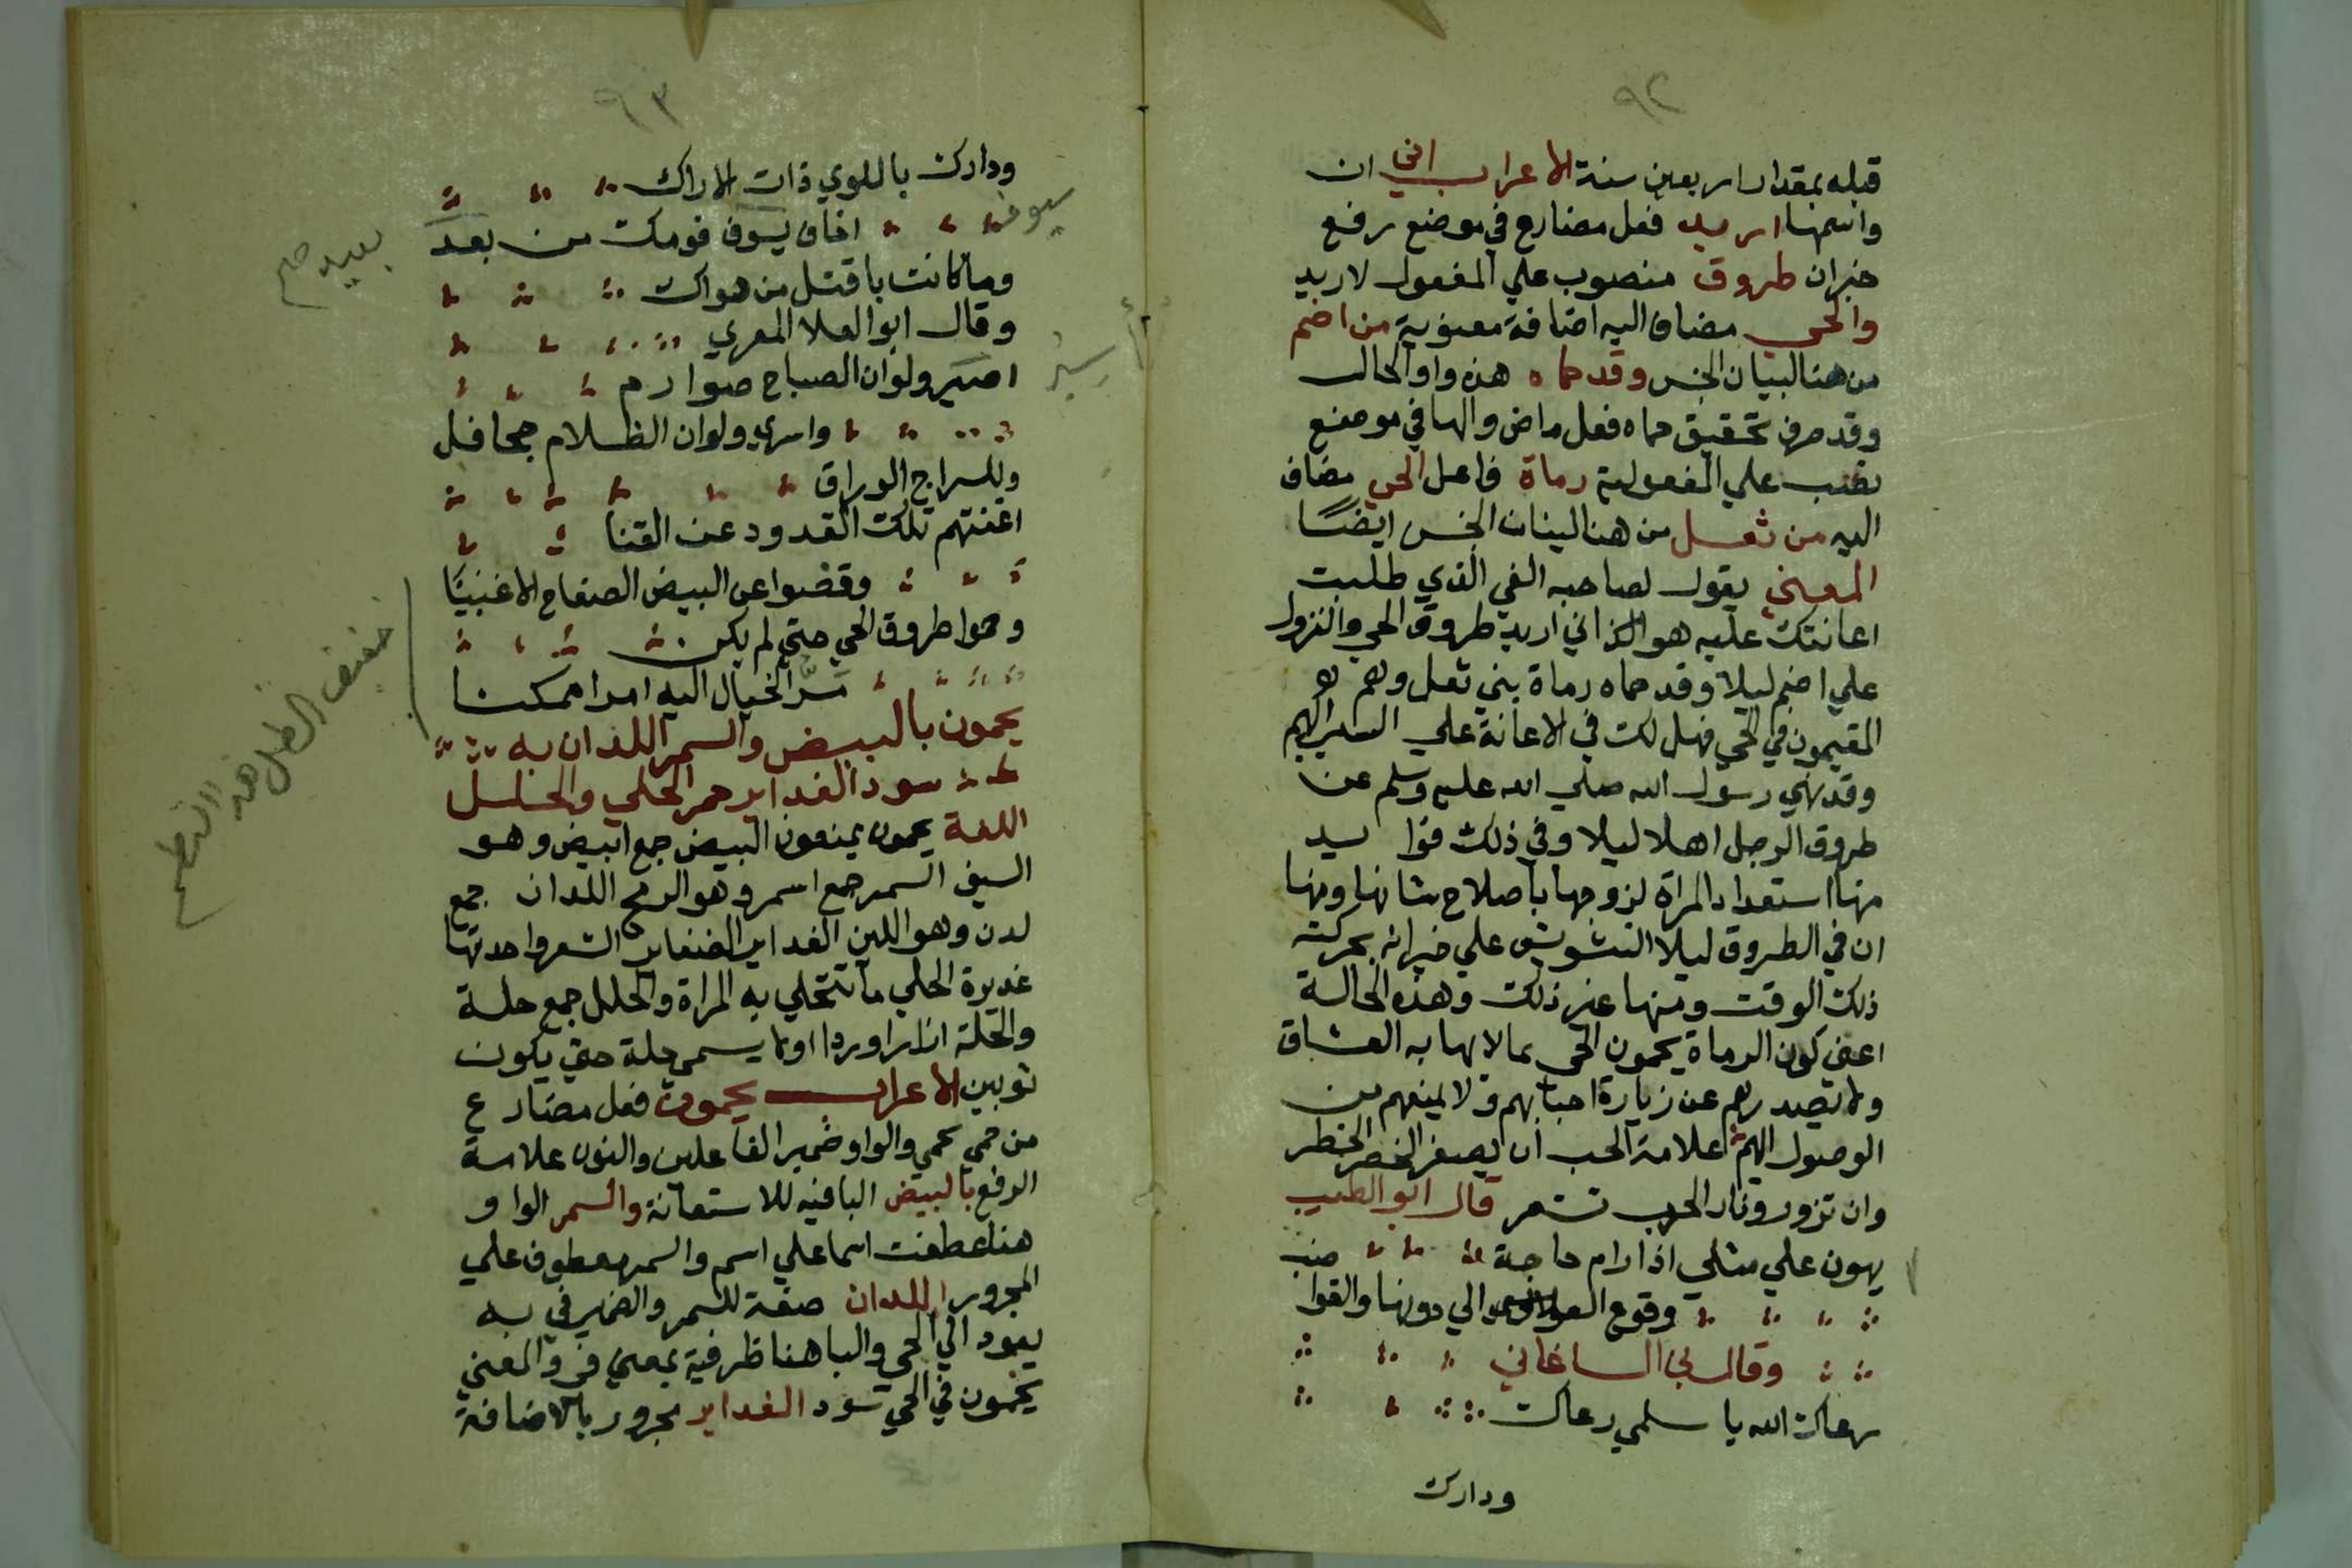 ٩٢
قبله بمقدار اربعين سنة الاعراب اني ان
واسمها اريد فعل مضارع في موضع رفع
خبران طروق منصوب علي المفعول لاريد
والحي مضاف اليه اضافة معنوية من اضم
من هنا لبيان الجنس وقد حماه هذه واو الحال
وقد حرف تحقيق حماه فعل ماض والها في موضع
نصب علي المفعولية رماة فاعل الحي مضاف
اليه من ثعل من هنا لبيان الجنس ايضًا
المعني يقول لصاحبه الغي الذي طلبت
اعانتك عليه هو اني اريد طروق الحي والنزول
علي اضم ليلا وقد حماه رماة بني ثعل وهم
المقيمون في الحي فهل لك في الاعانة علي السير اليهم
وقد نهي رسول الله صلي الله عليه وسلم عن
طروق الرجل اهلا ليلا وفي ذلك فوا يد
منها استعداد المراة لزوجها باصلاح شانها ومنها
ان في الطروق ليلا التشويش علي جيرانه بحركته
ذلك الوقت ومنها غير ذلك وهذه الحالة
اعني كون الرماة يحمون الحي مما لا يهابه العشاق
ولا تصدهم عن زيارة احبابهم ولا يمنعهم من
الوصول اليهم علامة الحب ان يصغر الخطر
وان تزور ونار الحرب تستعر قال ابو الطيب
يهون علي مثلي اذا رام حاجة
وقوع العوالي دونها والقوا ضب
وقال الساغاني
رعاك الله يا سلمي رعاك
ودارك
٩٣
ودارك باللوي ذات الاراك
اخاف يسوف قومك من بعد
سيوفا
بعيد صح
وما كانت باقتل من هواك
وقال ابو العلا المعري
اسير ولو ان الصباح صوارم
أسير
واسري ولو ان الظلام جحافل
وللسراج الوراق
اغنتهم تلك القدود عن القنا
وقضوا عن البيض الصفاح الاغنيا
وحموا طروق الحي حتي لم يكن
مَرُّ الخيال اليه امرا ممكنا
يحمون بالبيض والسمر اللدان به
سود الغداير حمر الحلي والحلل
اللغة يحمون يمنعون البيض جمع ابيض وهو
السيف السمر جمع اسمر وهو الرمح اللدان جمع
لدن وهو اللين الغداير الضفاير الشعر واحدتها
غديرة الحلي ما تتحلي به المراة والحلل جمع حلة
والحلة ازار اوردا اولا يسمي حلة حتي يكون
ثوبين الاعراب يحمون فعل مضارع
من حمي يحمي والواو ضمير الفاعلين والنون علامة
الرفع بالبيض البا فيه للاستعانة والسمر الواو
هنا عطفت اسما علي اسم والسمر معطوف علي
المجرور اللدان صفة للسمر والضمير في به
يعود الي الحي والبا هنا ظرفية بمعني في والمعني
يحمون في الحي سود الغداير مجرور بالاضافة